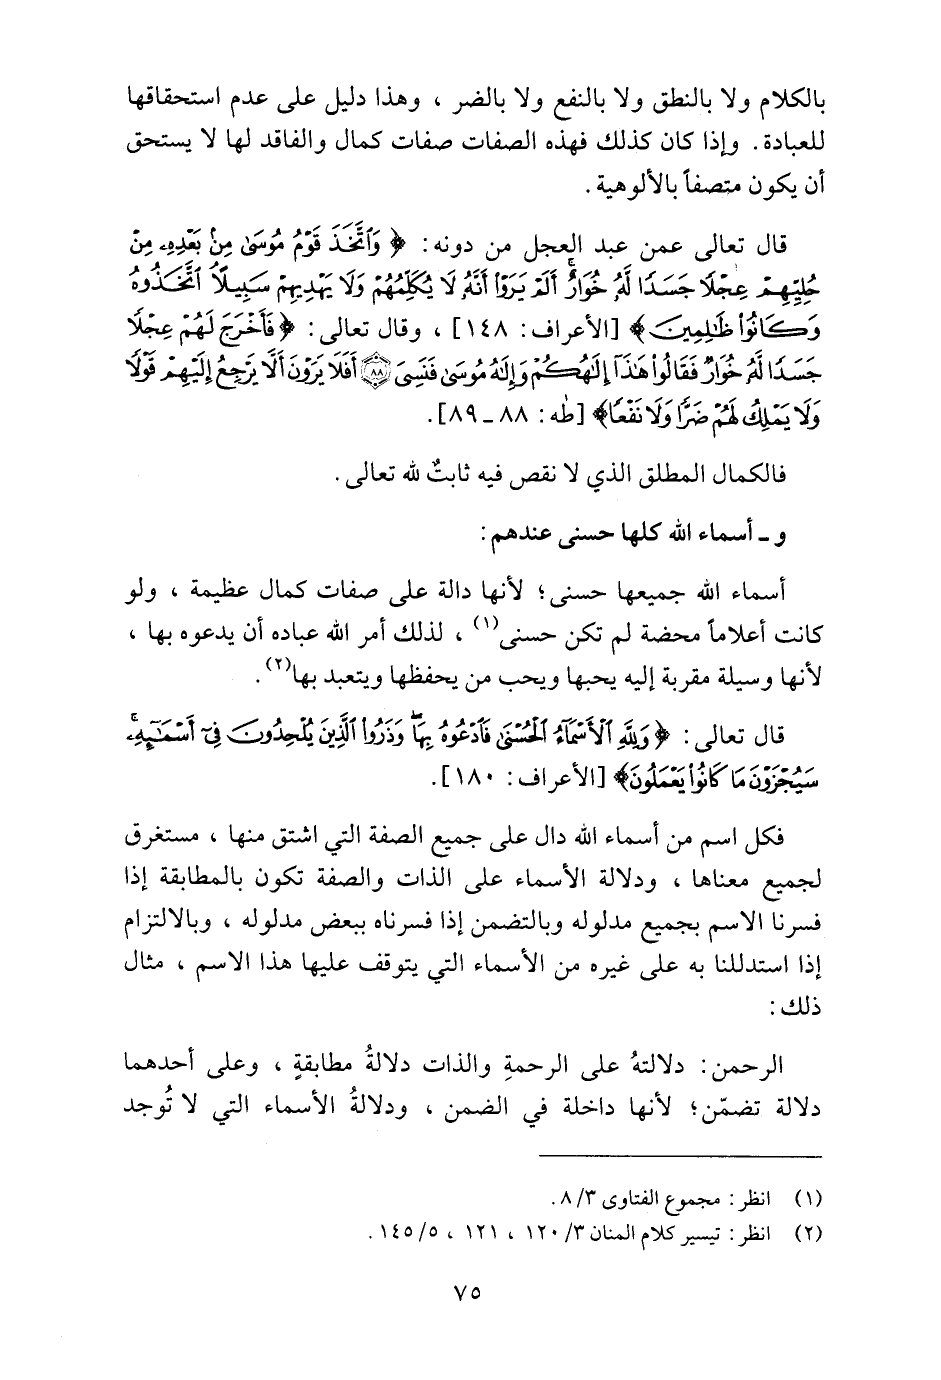 بالكلام ولا بالنطق ولا بالنفع ولا بالضر ، وهذا دليل على عدم استحقاقها
للعبادة. وإذا كان كذلك فهذه الصفات صفات كمال والفاقد لها لا يستحق
أن يكون متصفاً بالألوهية.
قال تعالى عمن عبد العجل من دونه: ﴿ وَٱتَّخَذَ قَوْمُ مُوسَىٰ مِنۢ بَعْدِهِۦ مِنْ
حُلِيِّهِمْ عِجْلًا جَسَدًا لَّهُۥ خُوَارٌ ۚ أَلَمْ يَرَوْا۟ أَنَّهُۥ لَا يُكَلِّمُهُمْ وَلَا يَهْدِيهِمْ سَبِيلًا ۘ ٱتَّخَذُوهُ
وَكَانُوا۟ ظَٰلِمِينَ﴾ [الأعراف: ١٤٨] ، وقال تعالى: ﴿ فَأَخْرَجَ لَهُمْ عِجْلًا
جَسَدًا لَّهُۥ خُوَارٌ فَقَالُوا۟ هَٰذَآ إِلَٰهُكُمْ وَإِلَٰهُ مُوسَىٰ فَنَسِىَ ﴿٨٨﴾ أَفَلَا يَرَوْنَ أَلَّا يَرْجِعُ إِلَيْهِمْ قَوْلًا
وَلَا يَمْلِكُ لَهُمْ ضَرًّا وَلَا نَفْعًا﴾ [طه: ٨٨ ـ ٨٩].
فالكمال المطلق الذي لا نقص فيه ثابتٌ لله تعالى.
و ـ أسماء الله كلها حسنى عندهم:
أسماء الله جميعها حسنى؛ لأنها دالة على صفات كمال عظيمة ، ولو
كانت أعلاماً محضة لم تكن حسنى(١) ، لذلك أمر الله عباده أن يدعوه بها ،
لأنها وسيلة مقربة إليه يحبها ويحب من يحفظها ويتعبد بها(٢).
قال تعالى: ﴿ وَلِلَّهِ ٱلْأَسْمَآءُ ٱلْحُسْنَىٰ فَٱدْعُوهُ بِهَا ۖ وَذَرُوا۟ ٱلَّذِينَ يُلْحِدُونَ فِىٓ أَسْمَٰٓئِهِۦ ۚ
سَيُجْزَوْنَ مَا كَانُوا۟ يَعْمَلُونَ﴾ [الأعراف: ١٨٠].
فكل اسم من أسماء الله دال على جميع الصفة التي اشتق منها ، مستغرق
لجميع معناها ، ودلالة الأسماء على الذات والصفة تكون بالمطابقة إذا
فسرنا الاسم بجميع مدلوله وبالتضمن إذا فسرناه ببعض مدلوله ، وبالالتزام
إذا استدللنا به على غيره من الأسماء التي يتوقف عليها هذا الاسم ، مثال
ذلك:
الرحمن: دلالتهُ على الرحمةِ والذات دلالةُ مطابقةٍ ، وعلى أحدهما
دلالة تضمّن؛ لأنها داخلة في الضمن ، ودلالةُ الأسماء التي لا تُوجد
(١) انظر: مجموع الفتاوى ٨/٣.
(٢) انظر: تيسير كلام المنان ١٢٠/٣ ، ١٢١ ، ١٤٥/٥.
٧٥